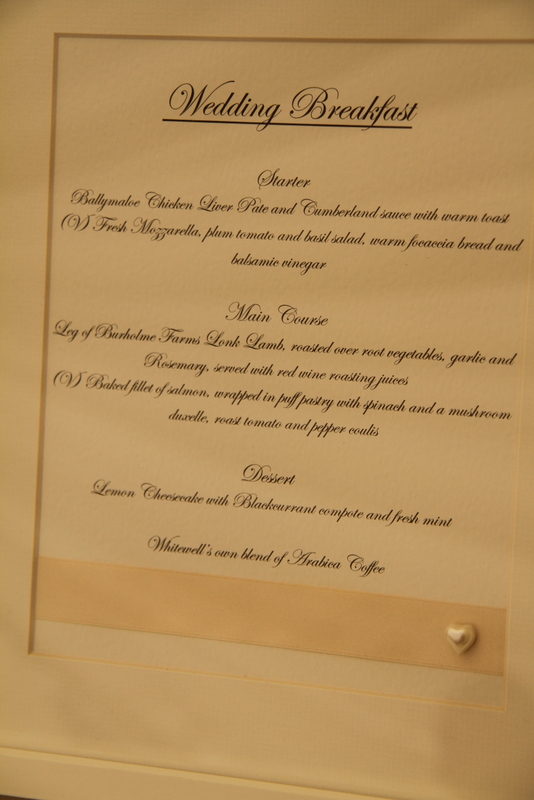 Wedding Breakfast
Starter
Ballymaloe Chicken Liver Pate and Cumberland sauce with warm toast
(V) Fresh Mozzarella, plum tomato and basil salad, warm focaccia bread and
balsamic vinegar
Main Course
Leg of Burholme Farms Lonk Lamb, roasted over root vegetables, garlic and
Rosemary, served with red wine roasting juices
(V) Baked fillet of salmon, wrapped in puff pastry with spinach and a mushroom
duxelle, roast tomato and pepper coulis
Dessert
Lemon Cheesecake with Blackcurrant compote and fresh mint
Whitewell's own blend of Arabica Coffee